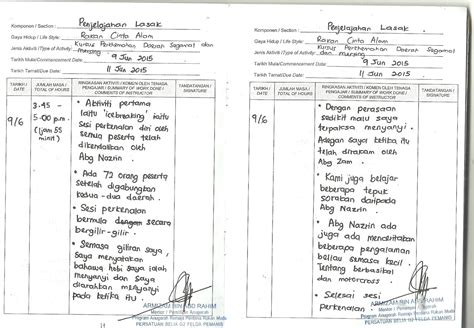 Komponen / Section : Penjelajahan Lasak
Gaya Hidup / Life Style: Rakan Cinta Alam
Jenis Aktiviti /Type of Activity: Kursus Perkhemahan Daerah Segamat dan
mersing
Tarikh Mula/Commencement Date: 9 Jun 2015
Tarikh Tamat/Due Date: 11 Jun 2015
TARIKH / DATE
JUMLAH MASA / TOTAL OF HOURS
RINGKASAN AKTIVITI / KOMEN OLEH TENAGA PENGAJAR / SUMMARY OF WORK DONE / COMMENTS OF INSTRUCTOR
TANDATANGAN / SIGNATURE
9/6
3.45 -
5.00 p.m
(1 jam 55
minit)
• Aktiviti pertama
iaitu 'icebreaking' iaitu
sesi perkenalan diri oleh
semua peserta telah
dimulakan oleh
Abg Nazrin.
• Ada 72 orang peserta
setelah digabungkan
kedua-dua daerah.
• Sesi perkenalan
bermula dengan secara
bergilir-gilir.
• Semasa giliran saya,
saya menyatakan
bahawa hobi saya ialah
menyanyi dan saya
diarahkan menyanyi
pada ketika itu.
Komponen / Section : Penjelajahan Lasak
Gaya Hidup / Life Style: Rakan Cinta Alam
Jenis Aktiviti /Type of Activity: Kursus Perkhemahan Daerah Segamat dan
mersing
Tarikh Mula/Commencement Date: 9 Jun 2015
Tarikh Tamat/Due Date: 11 Jun 2015
TARIKH / DATE
JUMLAH MASA / TOTAL OF HOURS
RINGKASAN AKTIVITI / KOMEN OLEH TENAGA PENGAJAR / SUMMARY OF WORK DONE / COMMENTS OF INSTRUCTOR
TANDATANGAN / SIGNATURE
9/6
• Dengan perasaan
sedikit malu saya
terpaksa menyanyi.
Adegan saya ketika itu
telah dirakam oleh
Abg Zam.
• Kami juga belajar
beberapa tepuk
sorakan daripada
Abg Nazrin.
• Abg Nazrin ada
juga ada menceritakan
beberapa pengalaman
beliau semasa kecil.
Tentang berbasikal
dan motorcross.
• Selesai sesi
perkenalan.
ARMIZAM BIN ABD RAHIM
Mentor / Penyelia Anugerah
Program Anugerah Remaja Perdana Rakan Muda
PERSATUAN BELIA G2 FELDA PEMANIS